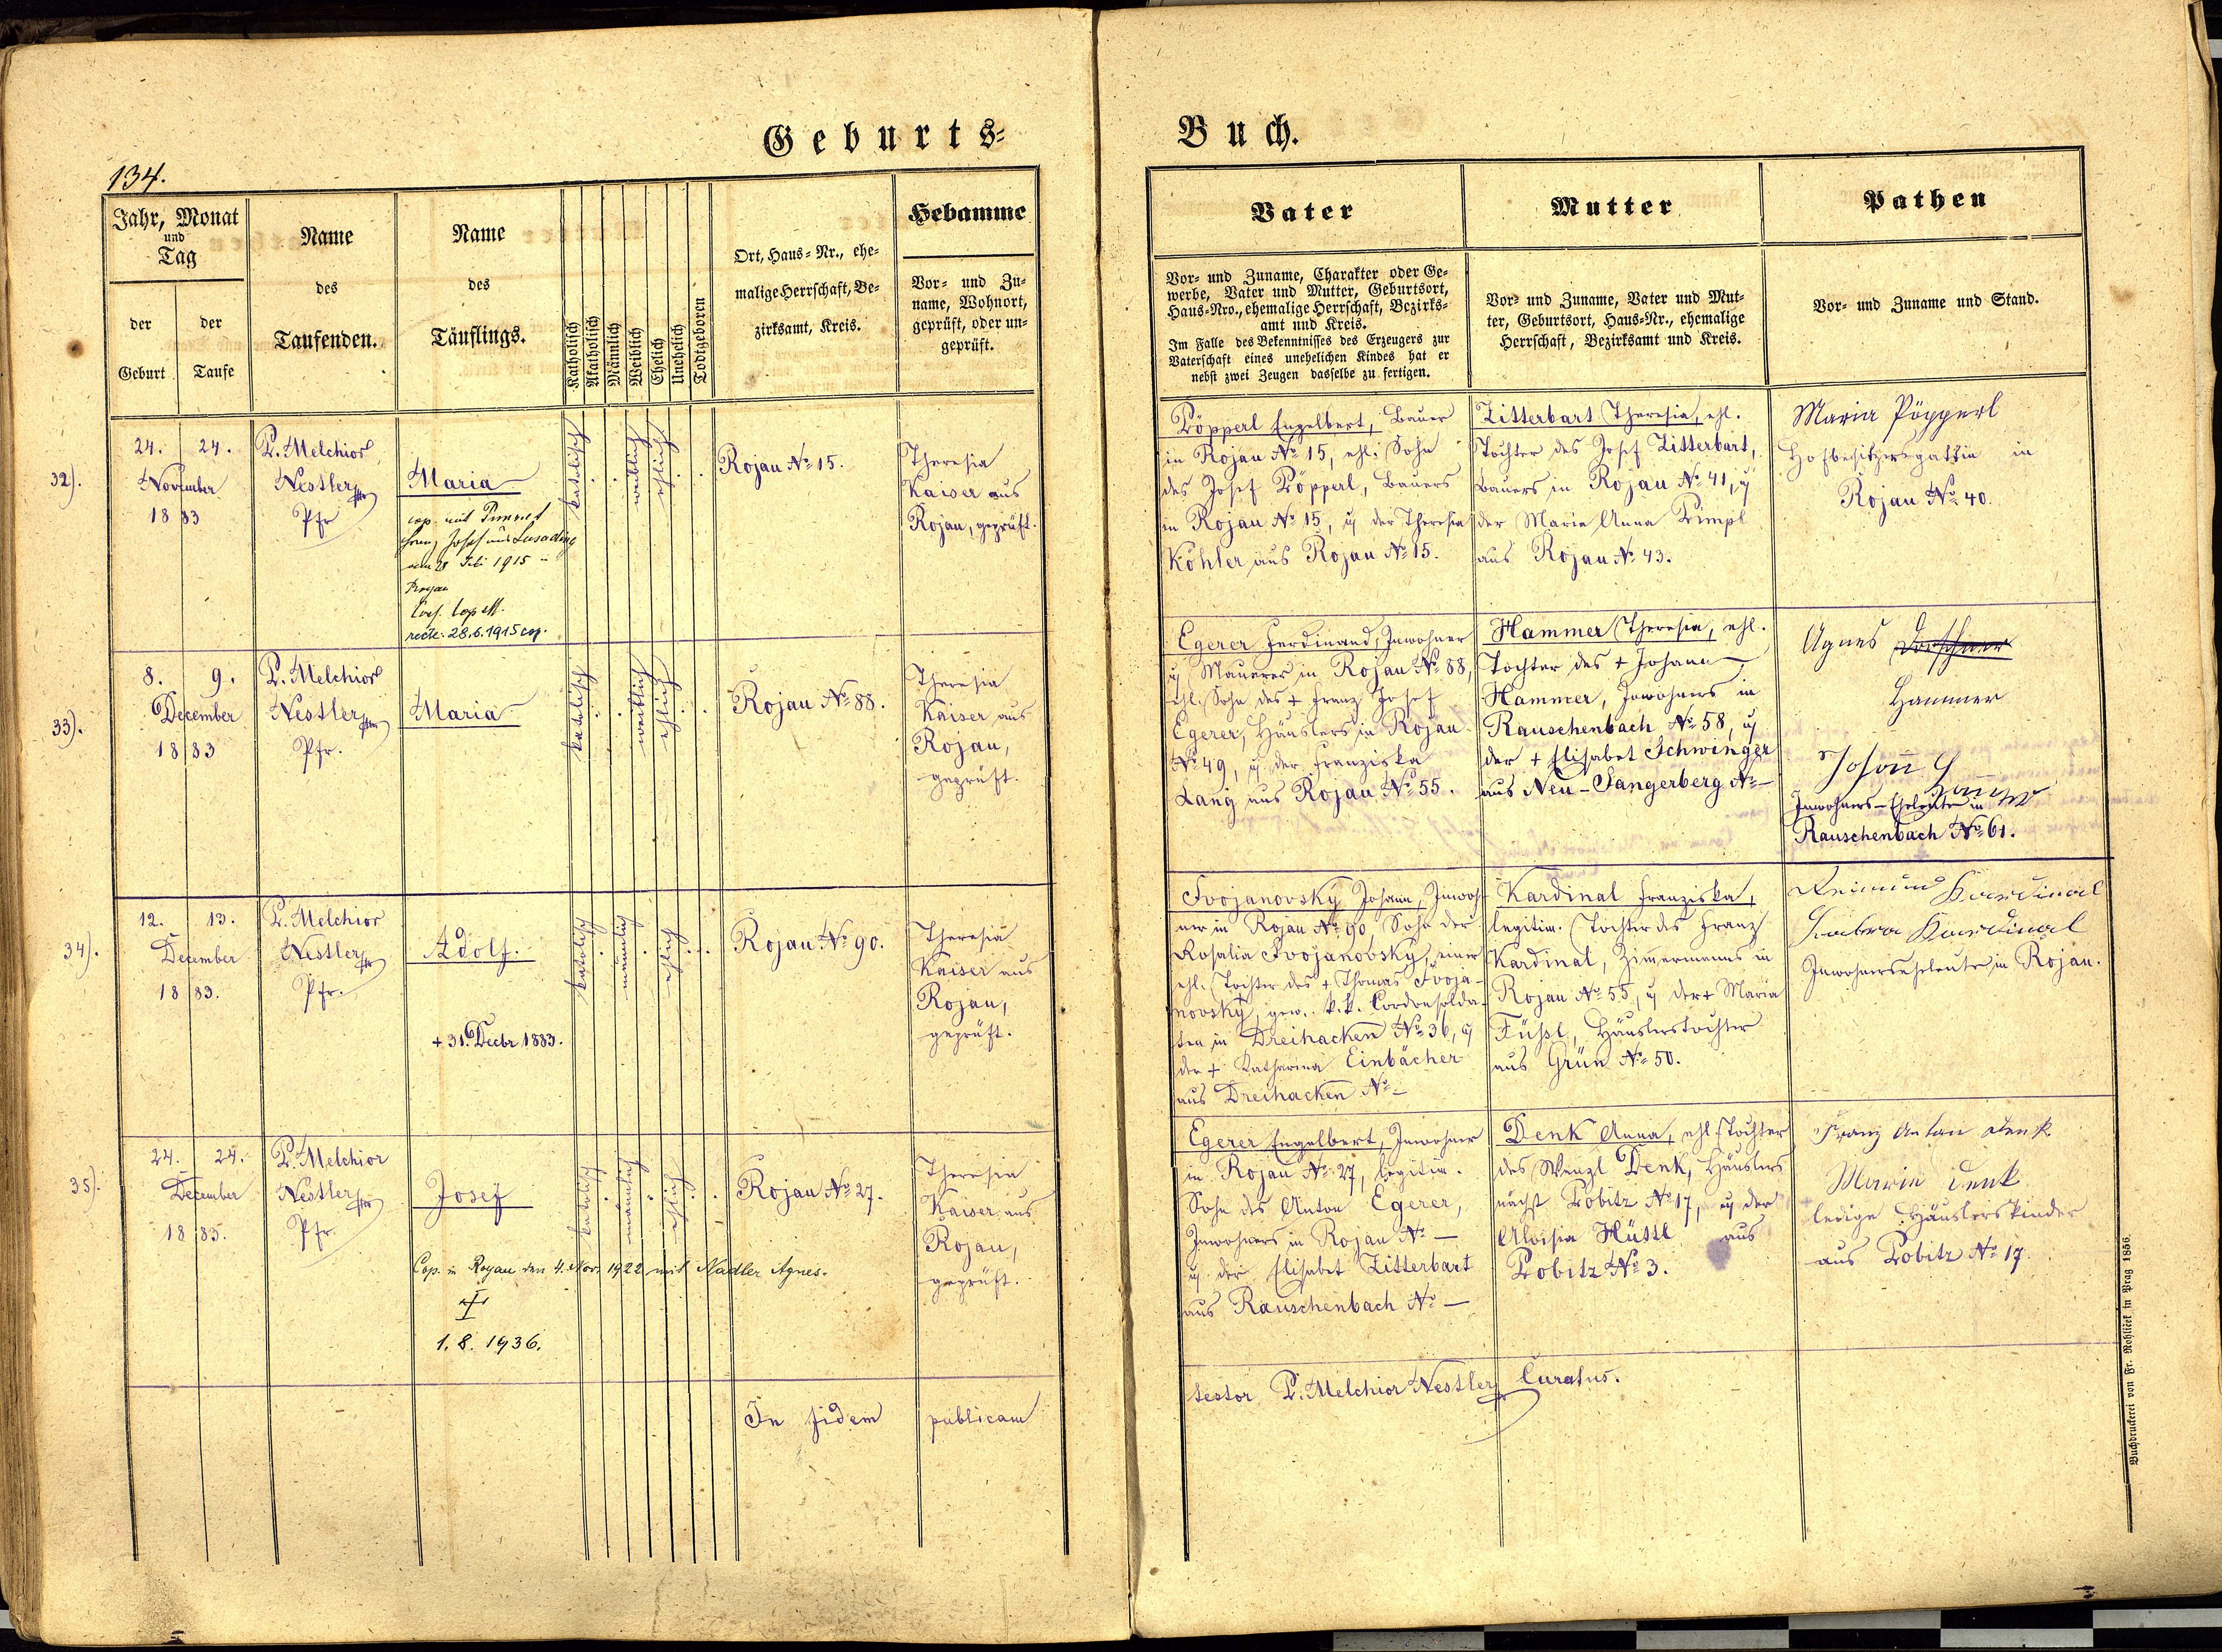 Geburts-
Buch.
134.
Jahr, Monat
und
Tag
der
Geburt
der
Taufe
Name
des
Taufenden.
Name
des
Täuflings.
Katholisch
Akatholisch
Männlich
Weiblich
Ehelich
Unehelich
Todtgeboren
Ort, Haus-Nr., ehe-
malige Herrschaft, Be-
zirksamt, Kreis.
Hebamme
Vor- und Zu-
name, Wohnort,
geprüft, oder un-
geprüft.
Vater
Vor- und Zuname, Charakter oder Ge-
werbe, Vater und Mutter, Geburtsort,
Haus-Nro., ehemalige Herrschaft, Bezirks-
amt und Kreis.
Im Falle des Bekenntnisses des Erzeugers zur
Vaterschaft eines unehelichen Kindes hat er
nebst zwei Zeugen dasselbe zu fertigen.
Mutter
Vor- und Zuname, Vater und Mut-
ter, Geburtsort, Haus-Nr., ehemalige
Herrschaft, Bezirksamt und Kreis.
Pathen
Vor- und Zuname und Stand.
32).
24. 24.
November
18 83
P. Melchior
Nestler
Pfr
Maria
cop. mit
Josef
am 28 1915
Rojau
recte: 28.6.1915 cop.
katolisch
weiblich
ehlich
Rojau No 15.
Theresia
Kaiser aus
Rojau, geprüft.
Pöpperl Engelbert, Bauer
in Rojau No 15, ehl. Sohn
des Josef Pöpperl, Bauers
in Rojau No 15, u der Theresia
Köhler aus Rojau No 15.
Zitterbart Theresia, ehl.
Tochter des Josef Zitterbart,
Bauers in Rojau No 41, u
der Maria Anna Pimpl
aus Rojau No 43.
Maria Pöpperl
Hofbesitzersgattin in
Rojau No 40.
33).
8. 9.
December
18 83
P. Melchior
Nestler
Pfr.
Maria
katolisch
weiblich
ehlich
Rojau No 88.
Theresia
Kaiser aus
Rojau,
geprüft.
Egerer Ferdinand, Inwohner
u Maurer in Rojau No 88,
ehl. Sohn des + Franz Josef
Egerer, Häuslers in Rojau
No 49, u der Franziska
Lang aus Rojau No 55.
Hammer Theresia, ehl.
Tochter des + Johann
Hammer, Inwohners in
Rauschenbach No 58, u
der + Elisabet Schwinger
aus Neu-Sangerberg No —
Agnes
Hammer
Inwohners-Eheleute in
Rauschenbach No 61.
34).
12. 13.
December
18 83.
P. Melchior
Nestler
Pfr.
Adolf.
+ 31. Decbr 1883.
katolisch
männlich
ehlich
Rojau No 90.
Theresia
Kaiser aus
Rojau,
geprüft.
Svojanovsky Johann, Inwoh-
ner in Rojau No 90, Sohn der
Rosalia Svojanovsky, einer
ehl. Tochter des + Thomas Svoja-
novsky, gew. k.k. Cordonsolda-
ten in Dreihacken No 36, u
der + Katharina Einbächer
aus Dreihacken No —
Kardinal Franziska,
legitim. Tochter des Franz
Kardinal, Zimermanns in
Rojau No 55, u der + Maria
Füssl, Häuslerstochter
aus Grün No 50.
Kardinal
Kardinal
Inwohnerseheleute in Rojau.
35).
24. 24.
December
18 83.
P. Melchior
Nestler
Pfr.
Josef
Cop. in Rojau den 4. Nov. 1922 mit Nadler Agnes.
1. 8. 1936.
katolisch
männlich
ehlich
Rojau No 27.
Theresia
Kaiser aus
Rojau,
geprüft.
Egerer Engelbert, Inwohner
in Rojau No 27, legitim.
Sohn des Anton Egerer,
Inwohners in Rojau No —
u der Elisabet Zitterbart
aus Rauschenbach No —
Denk Anna, ehl. Tochter
des Wenzl Denk, Häuslers
nächst Pobitz No 17, u der
Aloisia Hüttl aus
Pobitz No 3.
Franz Anton Denk
Maria Denk
ledige Häuslerskinder
aus Pobitz No 17.
In fidem publicam
testor P. Melchior Nestler Curatus.
Buchdruckerei von Fr. Rohliček in Prag 1856.